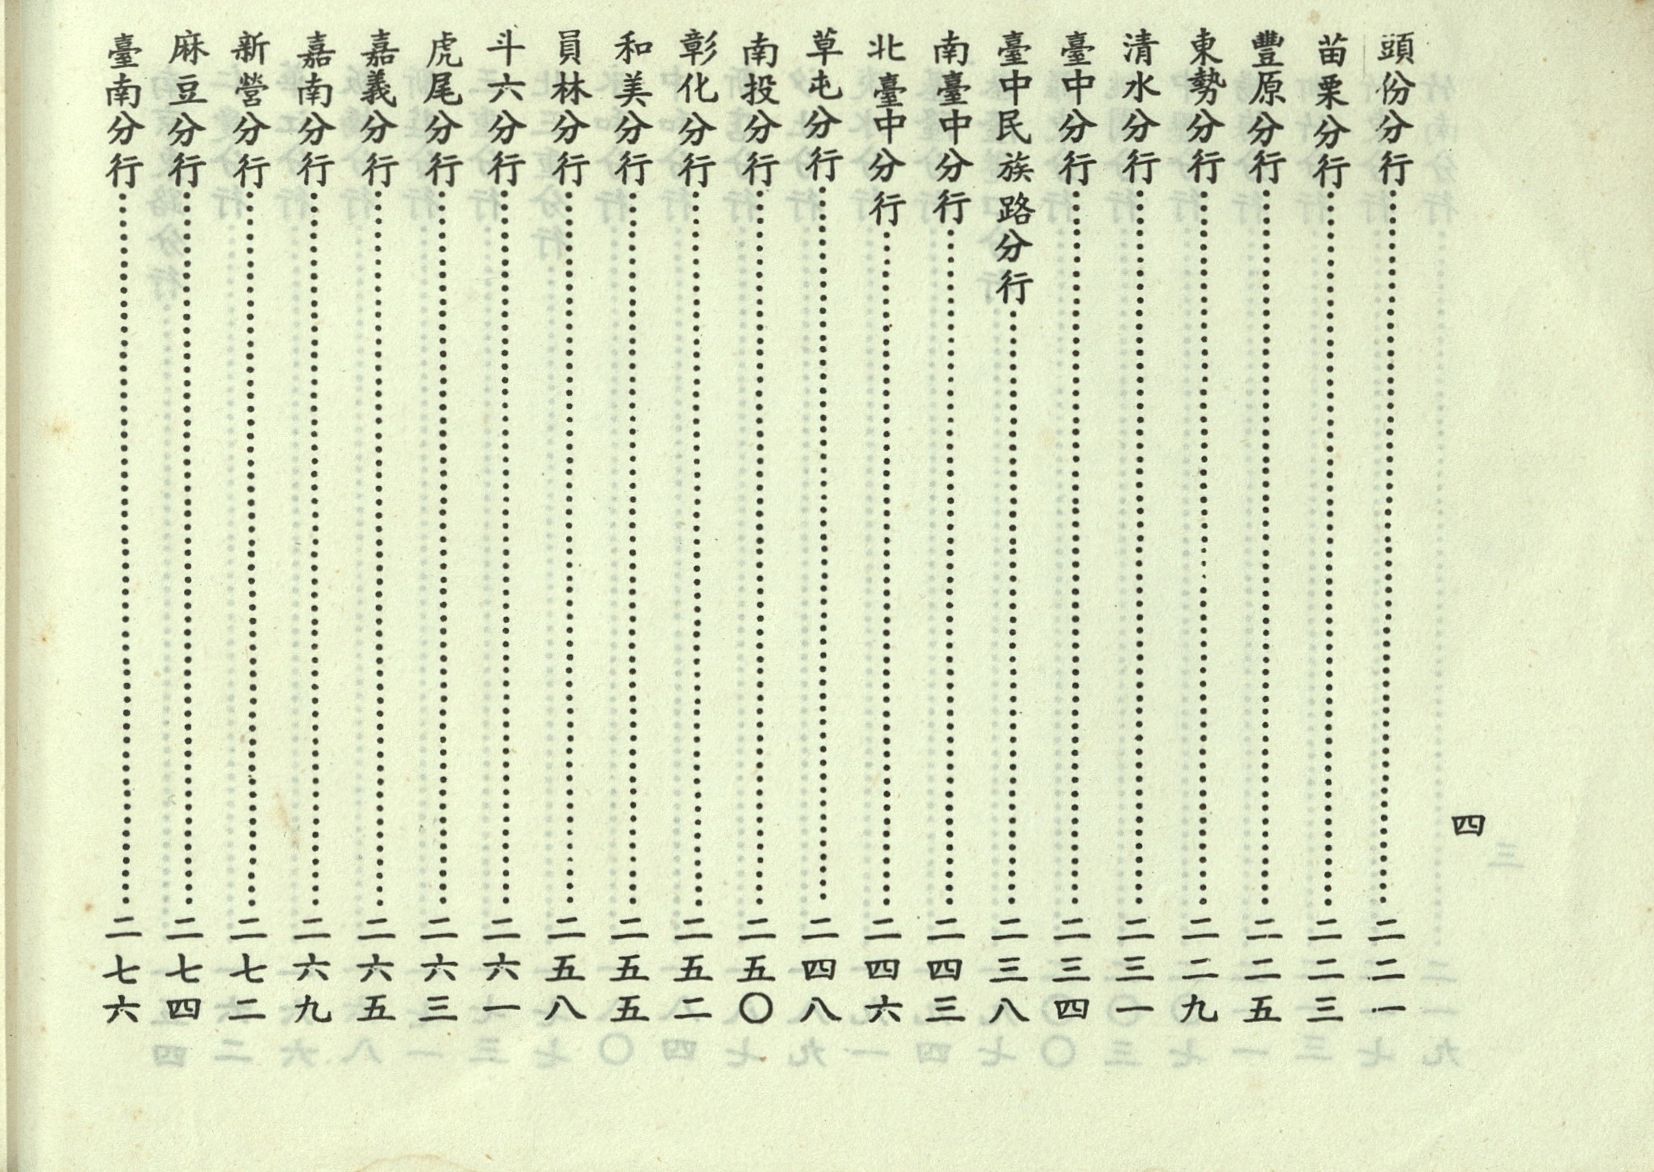 四
頭份分行⋯⋯⋯⋯二二一
苗栗分行⋯⋯⋯⋯二二三
豐原分行⋯⋯⋯⋯二二五
東勢分行⋯⋯⋯⋯二二九
清水分行⋯⋯⋯⋯二三一
臺中分行⋯⋯⋯⋯二三四
臺中民族路分行⋯⋯⋯⋯二三八
南臺中分行⋯⋯⋯⋯二四三
北臺中分行⋯⋯⋯⋯二四六
草屯分行⋯⋯⋯⋯二四八
南投分行⋯⋯⋯⋯二五〇
彰化分行⋯⋯⋯⋯二五二
和美分行⋯⋯⋯⋯二五五
員林分行⋯⋯⋯⋯二五八
斗六分行⋯⋯⋯⋯二六一
虎尾分行⋯⋯⋯⋯二六三
嘉義分行⋯⋯⋯⋯二六五
嘉南分行⋯⋯⋯⋯二六九
新營分行⋯⋯⋯⋯二七二
麻豆分行⋯⋯⋯⋯二七四
臺南分行⋯⋯⋯⋯二七六